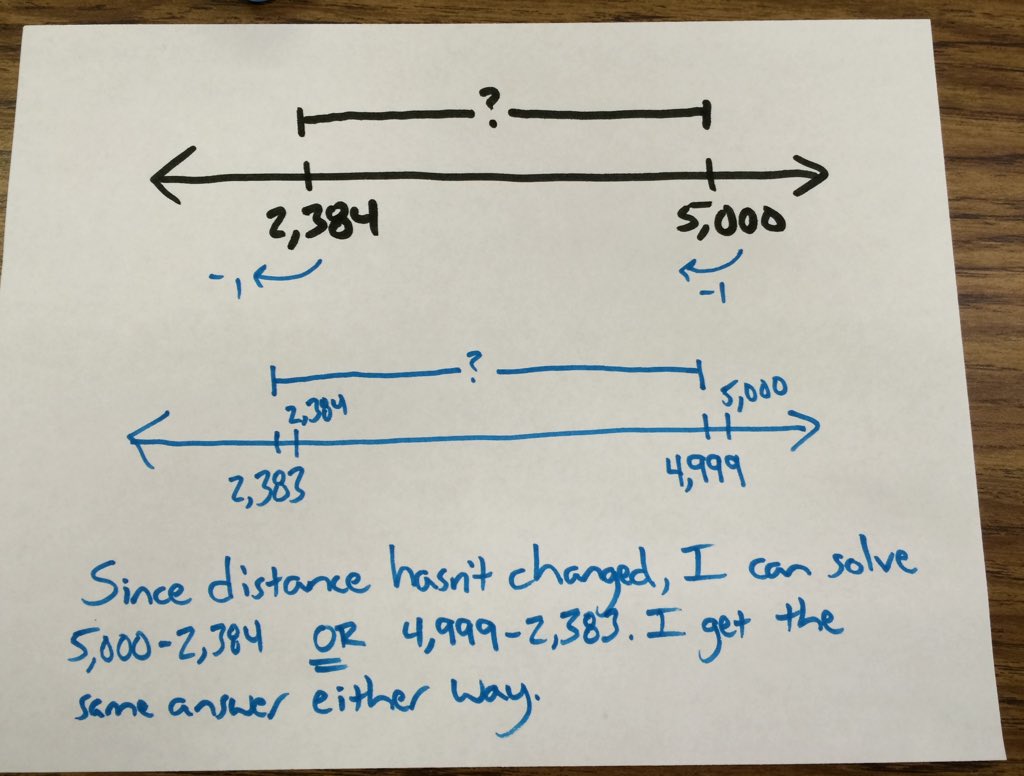 ?
2,384 5,000
-1 -1
?
2,384 5,000
2,383 4,999
Since distance hasn't changed, I can solve
5,000-2,384 OR 4,999-2,383. I get the
same answer either way.